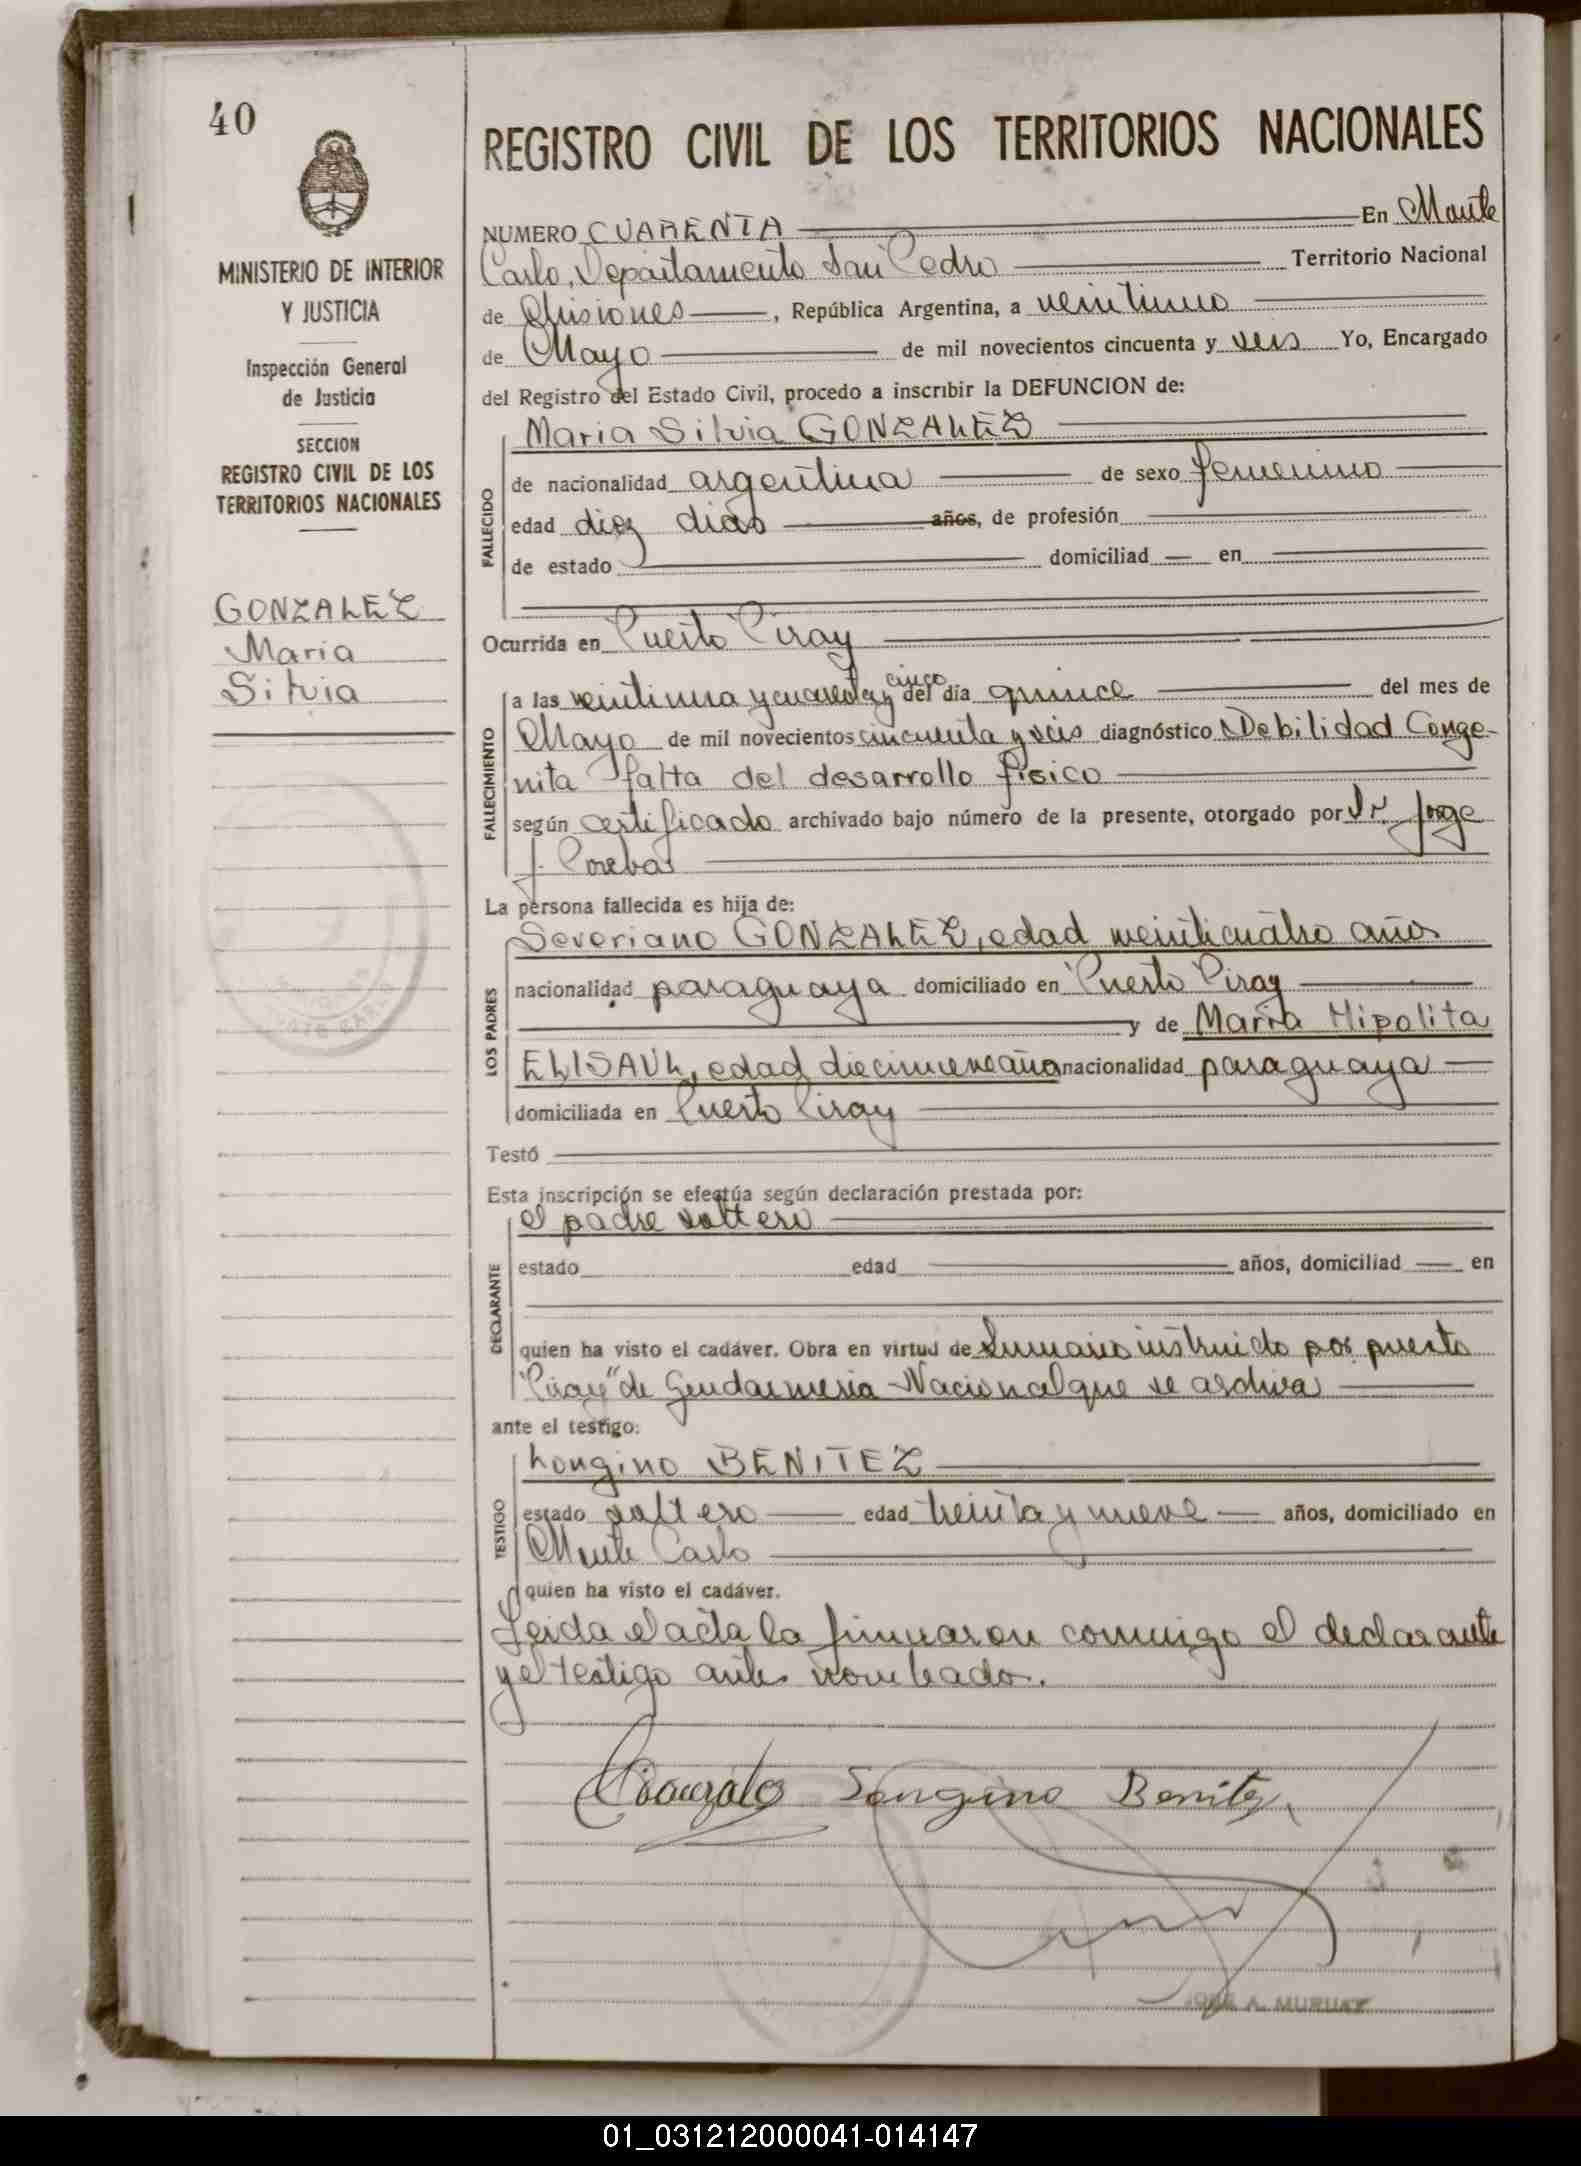 40
MINISTERIO DE INTERIOR
Y JUSTICIA
Inspección General
de Justicia
SECCION
REGISTRO CIVIL DE LOS
TERRITORIOS NACIONALES
GONZALEZ
Maria
Silvia
REGISTRO CIVIL DE LOS TERRITORIOS NACIONALES
NUMERO CUARENTA En Monte
Carlo, Departamento San Pedro Territorio Nacional
de Misiones, República Argentina, a veintiuno
de Mayo de mil novecientos cincuenta y seis Yo, Encargado
del Registro del Estado Civil, procedo a inscribir la DEFUNCION de:
Maria Silvia GONZALEZ
FALLECIDO
de nacionalidad argentina de sexo femenino
edad diez dias años, de profesión
de estado domiciliad en
Ocurrida en Puerto Piray
FALLECIMIENTO
a las veintiuna y cuarenta y cinco del día quince del mes de
Mayo de mil novecientos cincuenta y seis diagnóstico Debilidad Conge-
nita falta del desarrollo fisico
según certificado archivado bajo número de la presente, otorgado por Dr. Jorge
J.
La persona fallecida es hija de:
LOS PADRES
Severiano GONZALEZ, edad veinticuatro años
nacionalidad paraguaya domiciliado en Puerto Piray
y de Maria Hipolita
ELISAUL, edad diecinueve años nacionalidad paraguaya
domiciliada en Puerto Piray
Testó
Esta inscripción se efectúa según declaración prestada por:
DECLARANTE
el padre soltero
estado edad años, domiciliad en
quien ha visto el cadáver. Obra en virtud de Sumario instruido por puerto
"Piray" de Gendarmeria Nacional que se archiva
ante el testigo:
TESTIGO
Longino BENITEZ
estado soltero edad treinta y nueve años, domiciliado en
Monte Carlo
quien ha visto el cadáver.
Leida el acta la firmaron conmigo el declarante
y el testigo antes nombrado.
Gonzalez Longino Benitez
A. MURUAT
01_031212000041-014147